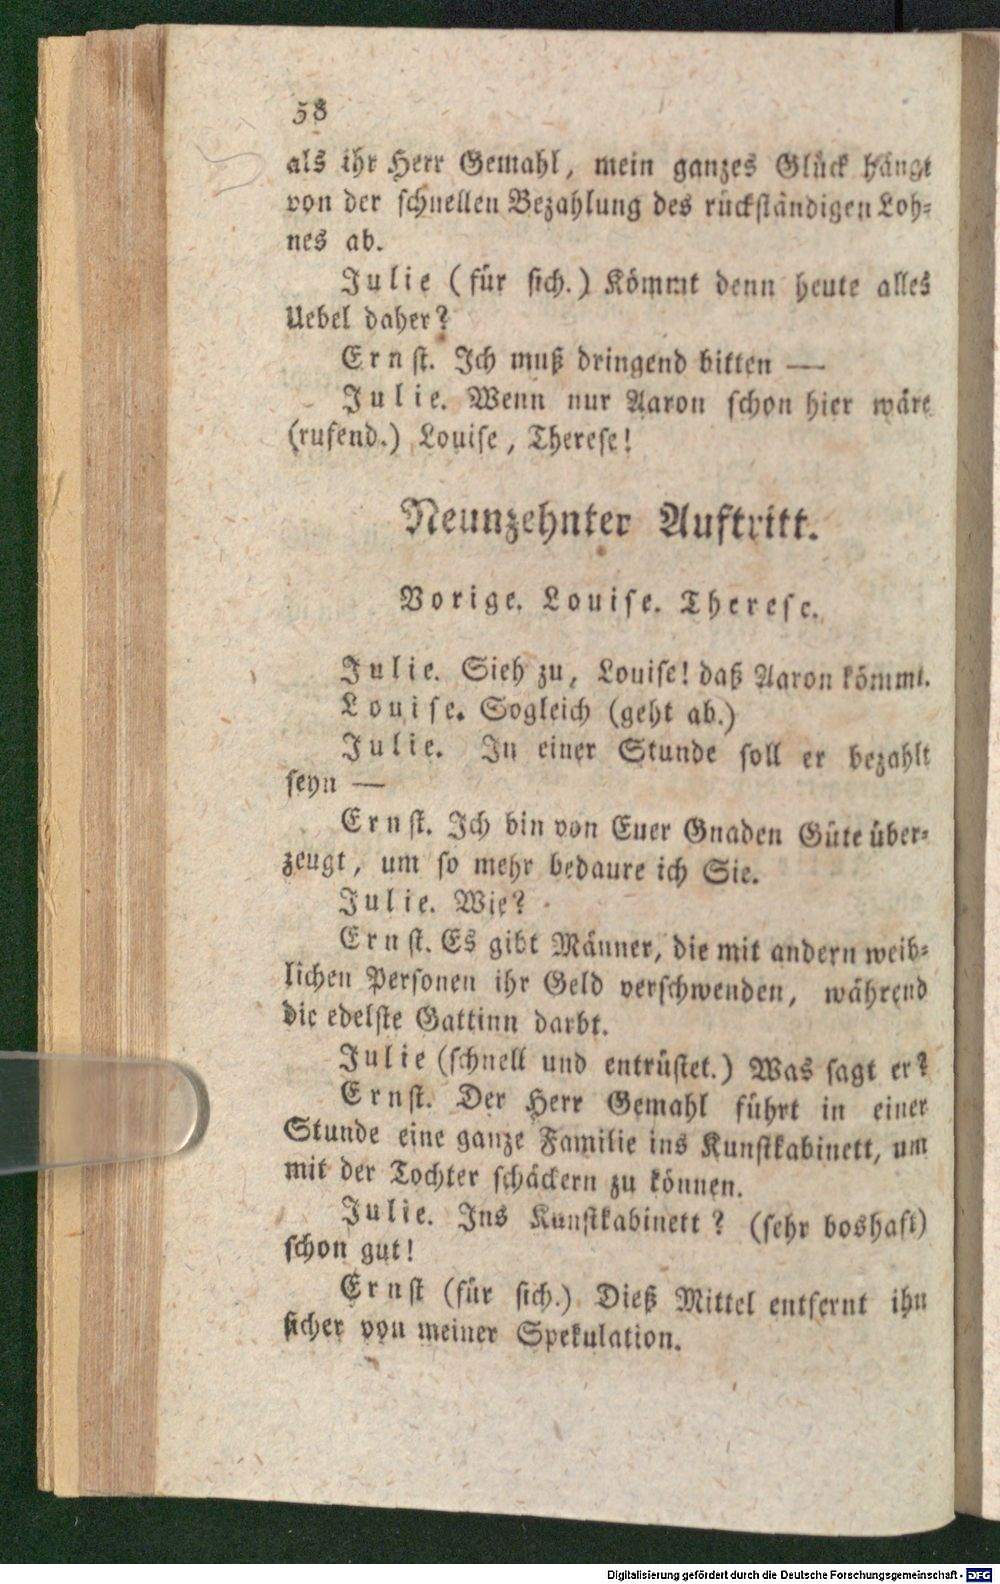 58
als ihr Herr Gemahl, mein ganzes Glück hängt
von der schnellen Bezahlung des rückständigen Loh-
nes ab.
Julie (für sich.) Kömmt denn heute alles
Uebel daher?
Ernst. Ich muß dringend bitten —
Julie. Wenn nur Aaron schon hier wäre
(rufend.) Louise, Therese!
Neunzehnter Auftritt.
Vorige. Louise. Therese.
Julie. Sieh zu, Louise! daß Aaron kömmt.
Louise. Sogleich (geht ab.)
Julie. In einer Stunde soll er bezahlt
seyn —
Ernst. Ich bin von Euer Gnaden Güte über-
zeugt, um so mehr bedaure ich Sie.
Julie. Wie?
Ernst. Es gibt Männer, die mit andern weib-
lichen Personen ihr Geld verschwenden, während
die edelste Gattinn darbt.
Julie (schnell und entrüstet.) Was sagt er?
Ernst. Der Herr Gemahl führt in einer
Stunde eine ganze Familie ins Kunstkabinett, um
mit der Tochter schäckern zu können.
Julie. Ins Kunstkabinett? (sehr boshaft)
schon gut!
Ernst (für sich.) Dieß Mittel entfernt ihn
sicher von meiner Spekulation.
Digitalisierung gefördert durch die Deutsche Forschungsgemeinschaft - DFG